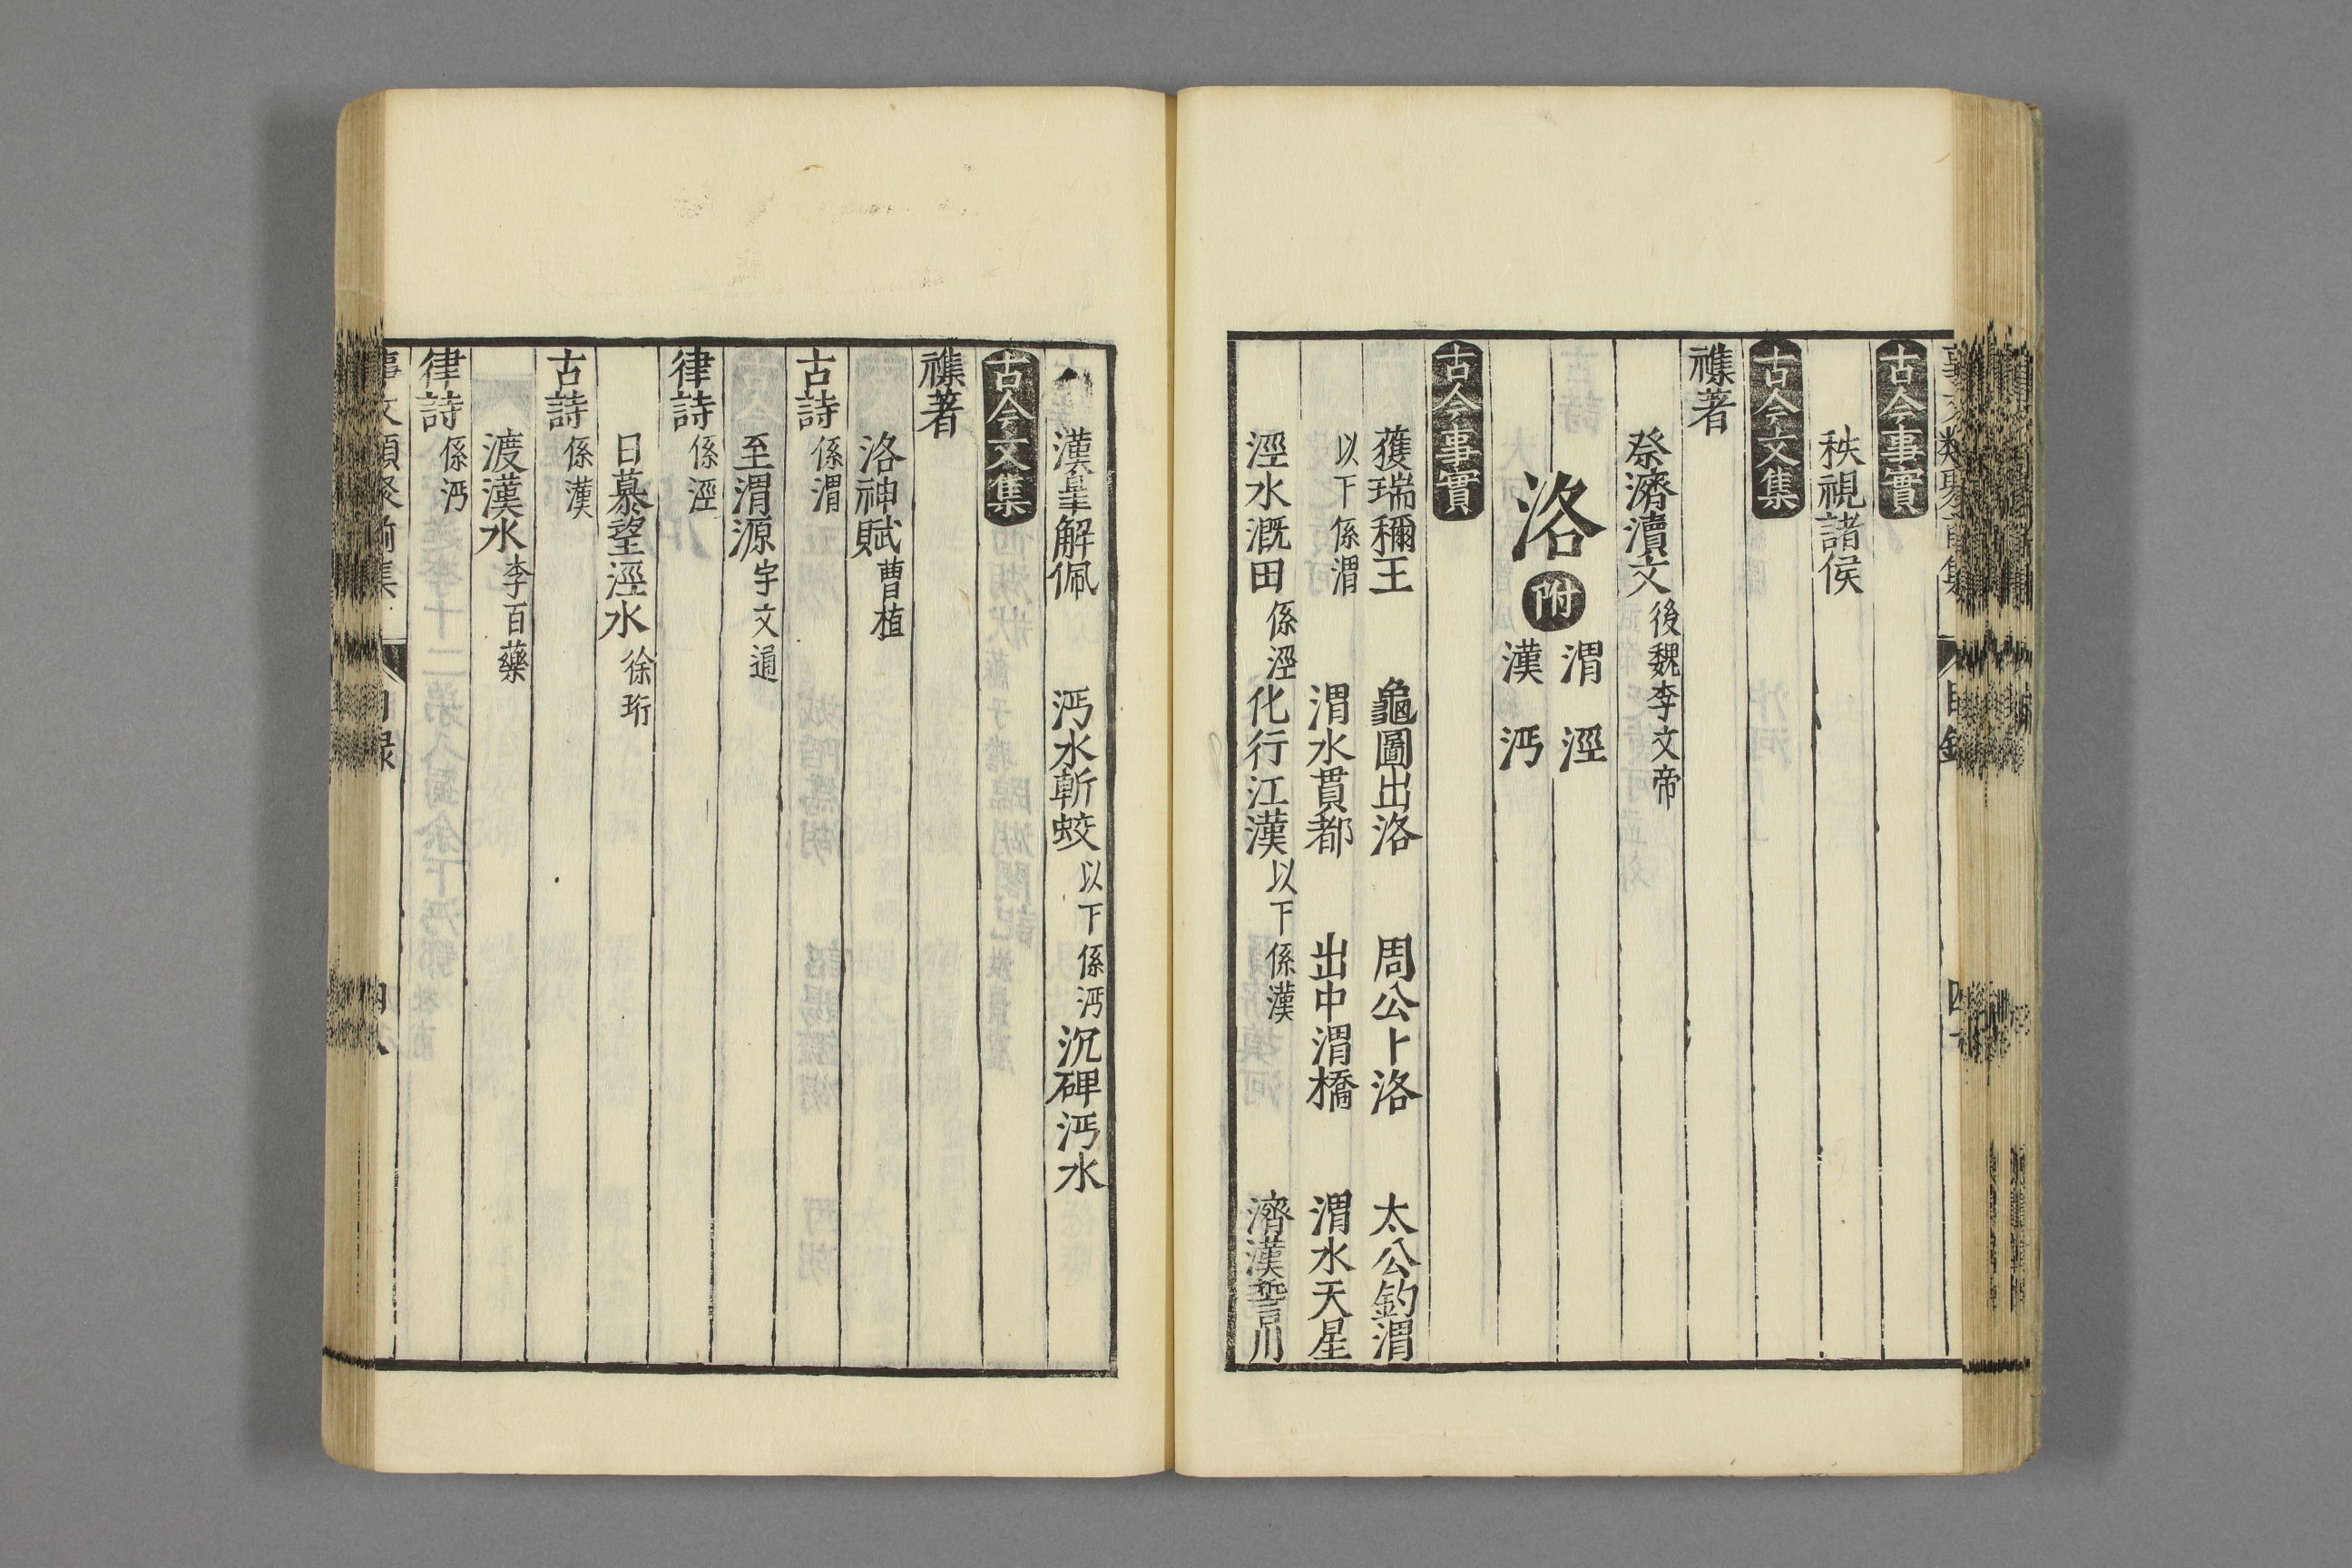 古今事實
秩視諸侯
古今文集
襍著
祭濟瀆文 後魏李文帝
洛 附 渭 涇 漢 沔
古今事實
獲瑞稱王 龜圖出洛 周公卜洛 太公釣渭
以下係渭 渭水貫都 出中渭橋 渭水天星
涇水溉田 係涇 化行江漢 以下係漢 濟漢誓川
漢皐解佩 沔水斬蛟 以下係沔 沉碑沔水
古今文集
襍著
洛神賦 曹植
古詩 係渭
至渭源 宇文逌
律詩 係涇
日暮望涇水 徐珩
古詩 係漢
渡漢水 李百藥
律詩 係沔